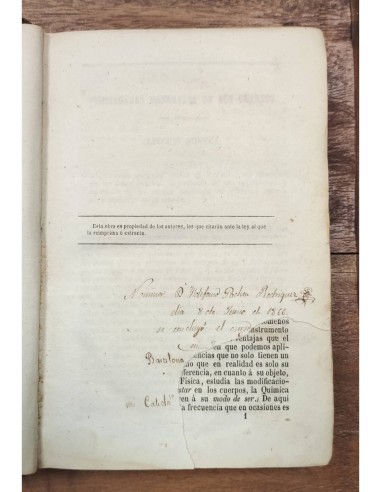 Esta obra es propiedad de los autores, los que citarán ante la ley al que
la reimprima ó estracte.
D Ildefonso Rodriguez
dia 8 de Junio el 1866
se concluyó el
nómenos
instrumento
entajas que el
en que podemos apli-
Barcelona
encias que no solo tienen un
no que en realidad es solo su
iferencia, en cuanto á su objeto,
Física, estudia las modificacio-
star en los cuerpos, la Química
mi
ren á su modo de ser. De aqui
a frecuencia que en ocasiones es
1